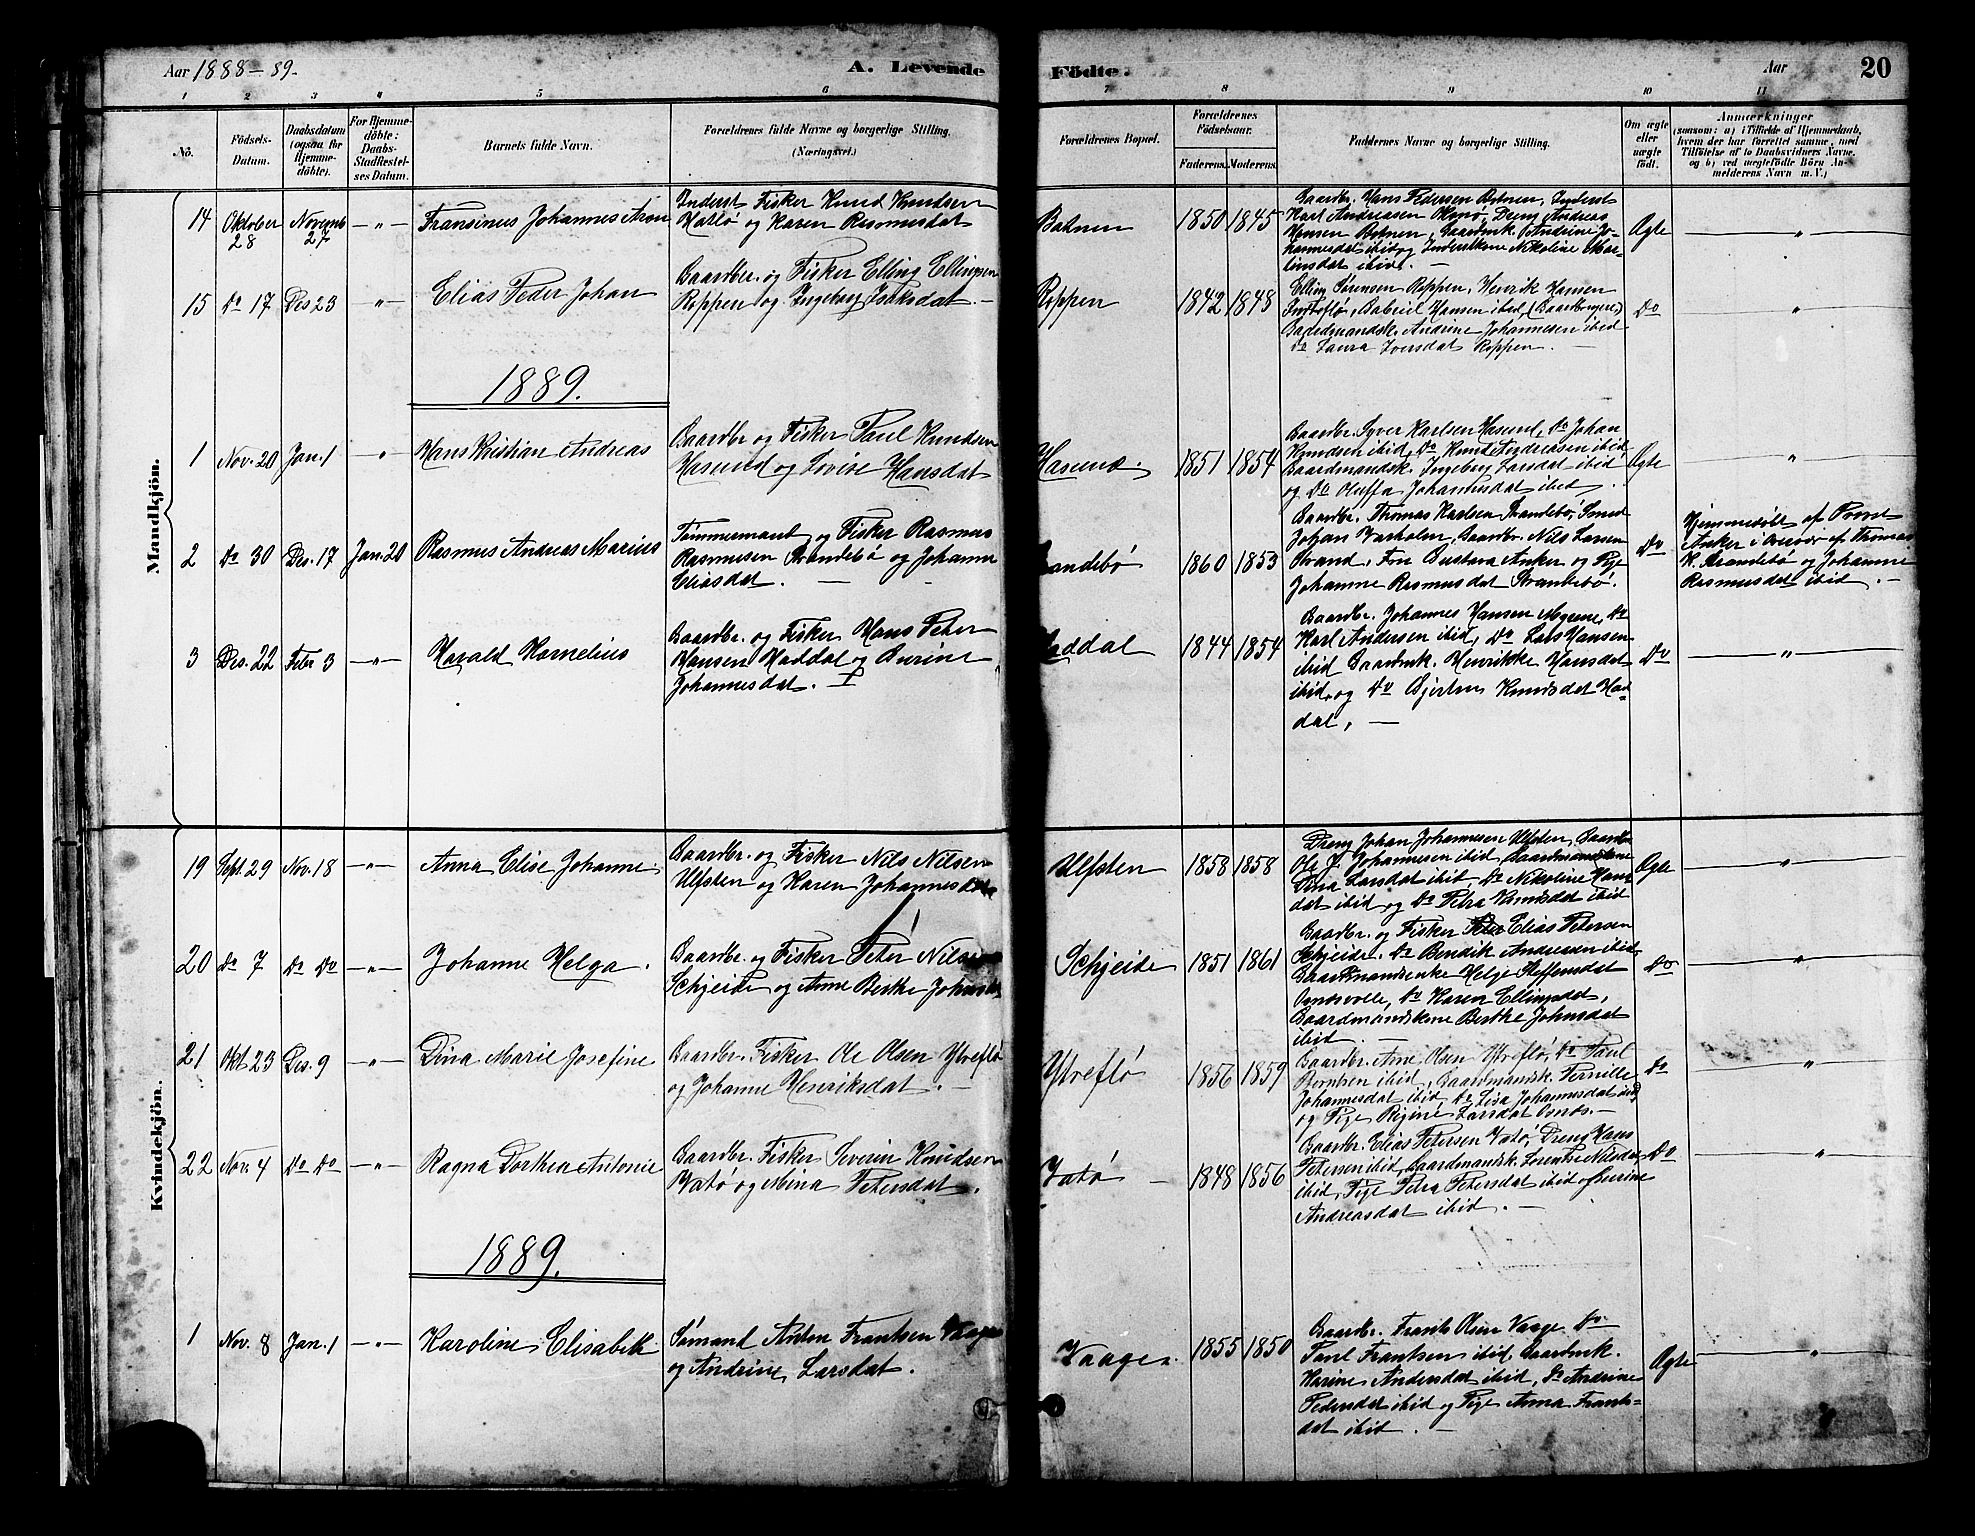 Aar 1888-89.
A. Levende
Födte.
Aar
20
1 2 3 4 5 6 7 8 9 10 11
No.
Födsels-
Datum.
Daabsdatum
(ogsaa for
Hjemme-
döbte).
For Hjemme-
döbte:
Daabs-
Stadfæstel-
ses Datum.
Barnets fulde Navn.
Forældrenes fulde Navne og borgerlige Stilling.
(Næringsvei.)
Forældrenes Bopæl.
Forældrenes
Födselsaar.
Faderens. Moderens.
Faddernes Navne og borgerlige Stilling.
Om ægte
eller
uægte
födt.
Anmærkninger
(saasom: a) i Tilfælde af Hjemmedaab,
hvem der har forrettet samme, med
Tilföielse af to Daabsvidners Navne,
og b) ved uægtefödte Börn An-
melderens Navn m. V.)
Mandkjön.
14 Oktober 28 Novemb 27 -"- Fransinus Johannes Aron
Inderst Fisker Knud Knudsen
Hatlø og Karen Rasmusdat
Botnen 1850 1845
Gaardbr. Hans Pedersen Botnen, Inderst
Karl Andreasen, Dreng Andreas
Hansen Botnen, Gaardmk. Andrine Jo-
hannesdat ibid og Inderstkone Nikoline Mar-
tinsdat ibid. -
Ægte "
15 Do 17 Des 23 " Elias Peder Johan
Gaardbr. og Fisker Elling Ellingsen
Roppen og Ingeborg Isaksdat. -
Roppen 1842 1848
Elling Sørensen Roppen, Henrik Hansen
Gabriel Hansen ibid, (Gaardbrugere)
Gaardmandsk. Andrine Johannesen ibid
Do Laura Iversdat Roppen. -
Do "
1889.
1 Nov. 20 Jan. 1 " Hans Kristian Andreas
Gaardbr og Fisker Paul Knudsen
Hasund og Lovise Hansdat
Hasund. 1851 1854
Gaardbr. Syver Karlsen Hasund, Do Johan
Knudsen ibid, Do Knud Andreasen ibid
Gaardmandsk. Ingeborg Larsdat ibid
og Do Oluffa Johannesdat ibid.
Ægte "
2 Do 30 Des. 17 Jan. 20 Rasmus Andreas Marius
Tømmermand og Fisker Rasmus
Rasmusen Strandebø og Johanne
Eliasdat. - -
andebø 1860 1853
Gaardbr. Thomas Karlsen Strandebø, Smed
Johan, Gaardbr. Nils Larsen
Strand, Fru Gustava Anker og Pige
Johanne Rasmusdat Strandebø.
Do
Hjemmedøbt af Provst
Anker i Overvær af Thomas
K. Strandebø og Johanne
Rasmusdat ibid. -
3 Des. 22 Febr 3 -"- Harald Kornelius
Gaardbr. og Fisker Hans Peter
Hansen Haddal og Burine
Johannesdat. -
addal 1844 1854
Gaardbr. Johannes Hansen, Do
Karl Andersen ibid, Do Lars Hansen
ibid Gaardmk. Henrikke Hansdat
ibid, og Do Gjertine Knudsdat Had-
dal, -
Do "
Kvindekjön.
19 Sept. 29 Nov. 18 -"- Anna Elise Johanne.
Gaardbr. og Fisker Nils Nilsen
Ulfsten og Karen Johannesdat
Ulfsten 1858 1858
Dreng Johan Johannesen Ulfsten, Gaardbr
Ole J. Johannesen ibid, Gaardmandskone
Dina Larsdat ibid, Do Nikoline Hans-
dat ibid og Do Petra Knudsdat ibid
Ægte "
20 Do 7 Do Do -"- Johanne Helga.
Gaardbr. og Fisker Peter Nilsen
Schjeide og Anne Berthe Johnsdat
Schjeide 1851 1861
Gaardbr. og Fisker Elias Petersen
Schjeide, Do Bendik Andreasen ibid,
Gaardmandsenke Helge Steffensdat
Do Karen Ellingsdat,
Gaardmandskone Berthe Johnsdat
ibid. -
Do "
21 Okt 23 Des. 9 -"- Dina Marie Josefine
Gaardbr. Fisker Ole Olsen Ytreflø
og Johanne Henriksdat. -
Ytreflø 1856 1859
Gaardbr. Arne Olsen Ytreflø, Do Paul
Berntsen ibid, Gaardmandsk. Pernille
Johannesdat ibid, Do Lisa Johannesdat ibid
og Pige Regine Larsdat Osnes. -
Do "
22 Nov. 4 Do Do -"- Ragna Dorthea Antonie
Gaardbr. Fisker Severin Knudsen
Vatø og Mina Petersdat.
Vatø - 1848 1856
Gaardbr. Elias Petersen Vatø, Dreng Hans
Petersen ibid, Gaardmandsk. Lorentse Nilsdat
ibid, Pige Petra Petersdat ibid
Andreasdat ibid. -
Do "
1889.
1 Nov. 8 Jan. 1 -"- Karoline Elisabeth
Sømand Anton Frantsen Vaage
og Andrine Larsdat.
Vaage. 1855 1850
Gaardbr. Frants Olsen Vaage Do
Paul Frantsen ibid, Gaardmk.
Karine Andersdat ibid, Do Andrine
Pedersdat ibid og Pige Anna Frants-
dat ibid. -
Ægte "